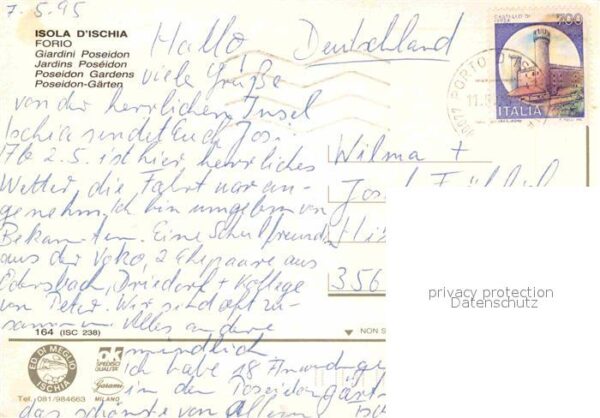 7.5.95
ISOLA D'ISCHIA
FORIO
Giardini Poseidon
Jardins Poséidon
Poseidon Gardens
Poseidon-Gärten
Hallo Deutschland
viele Grüße
von der herrlichen Insel
Ischia sendet Euch
2.5. ist hier herrliches
Wetter, die Fahrt war an-
genehm. Ich bin umgeben von
Bekannten. Eine Schulfreundin
aus der 2 Ehepaare aus
Edersbach, Driedorf + Kollege
von Peter. Wir sind oft zu-
sammen. Alles andere
mündlich
Ich habe 18
in den Poseidongärt
das schönste von allem
Wilma +
Josef
356
CASTELLO DI
700
ITALIA
PORTO D'ISCHIA
11.5
164 (ISC 238)
NON S
ED. DI MEGLIO
ISCHIA
Tel. 081/984663
ok
SPEDISCI
QUALITER
Garami
MILANO
privacy protection
Datenschutz